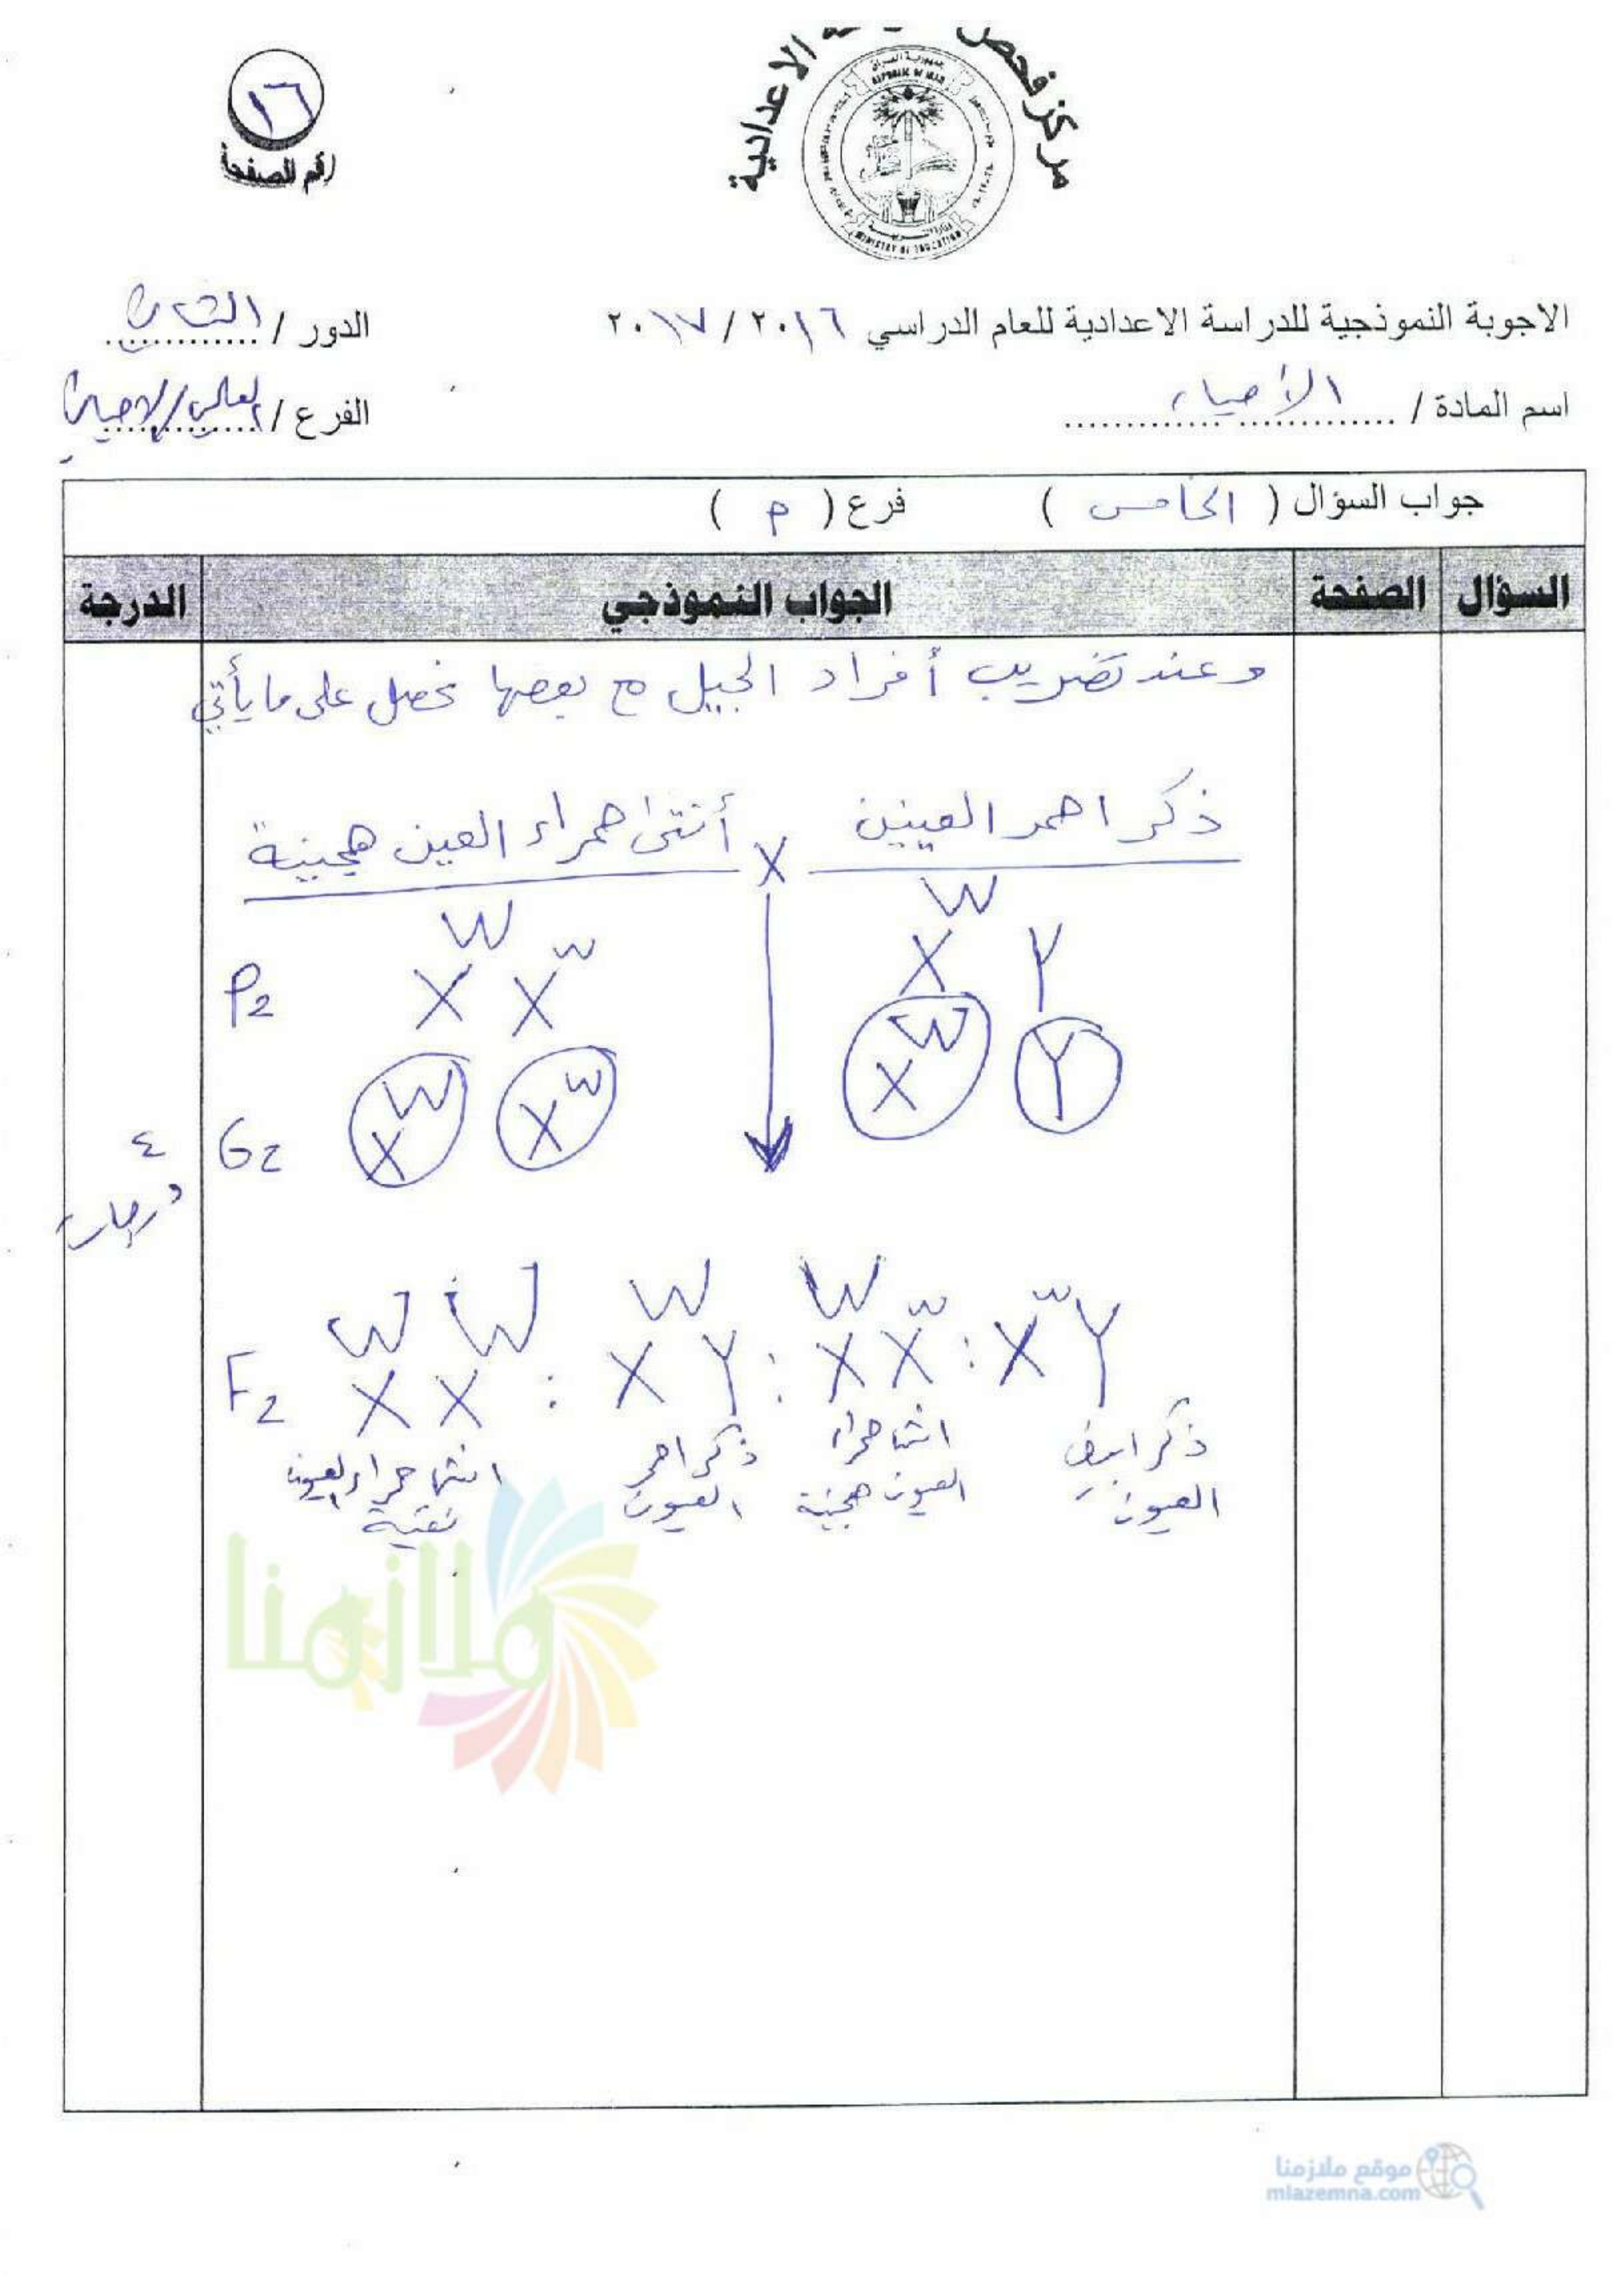 مركز فحص
الاعدادية
جمهورية العراق
REPUBLIC OF IRAQ
MINISTRY OF EDUCATION
١٦
رقم الصفحة
الاجوبة النموذجية للدراسة الاعدادية للعام الدراسي ٢٠١٦ / ٢٠١٧
الدور / الثاني
اسم المادة / الأحياء
الفرع / العلمي/الاحيائي
جواب السؤال ( الخامس ) فرع ( م )
السؤال الصفحة الجواب النموذجي الدرجة
وعند تضريب أفراد الجيل مع بعضها نحصل على ما يأتي
ذكر احمر العينين X أنثى حمراء العين هجينة
P2 X^W X^w X^W Y
G2 X^W X^w X^W Y
٤ درجات
F2 X^W X^W : X^W Y : X^W X^w : X^w Y
ذكر ابيض العيون
انثى حمراء العيون هجينة
ذكر احمر العيون
انثى حمراء العيون نقية
ملازمنا
موقع ملازمنا
mlazemna.com